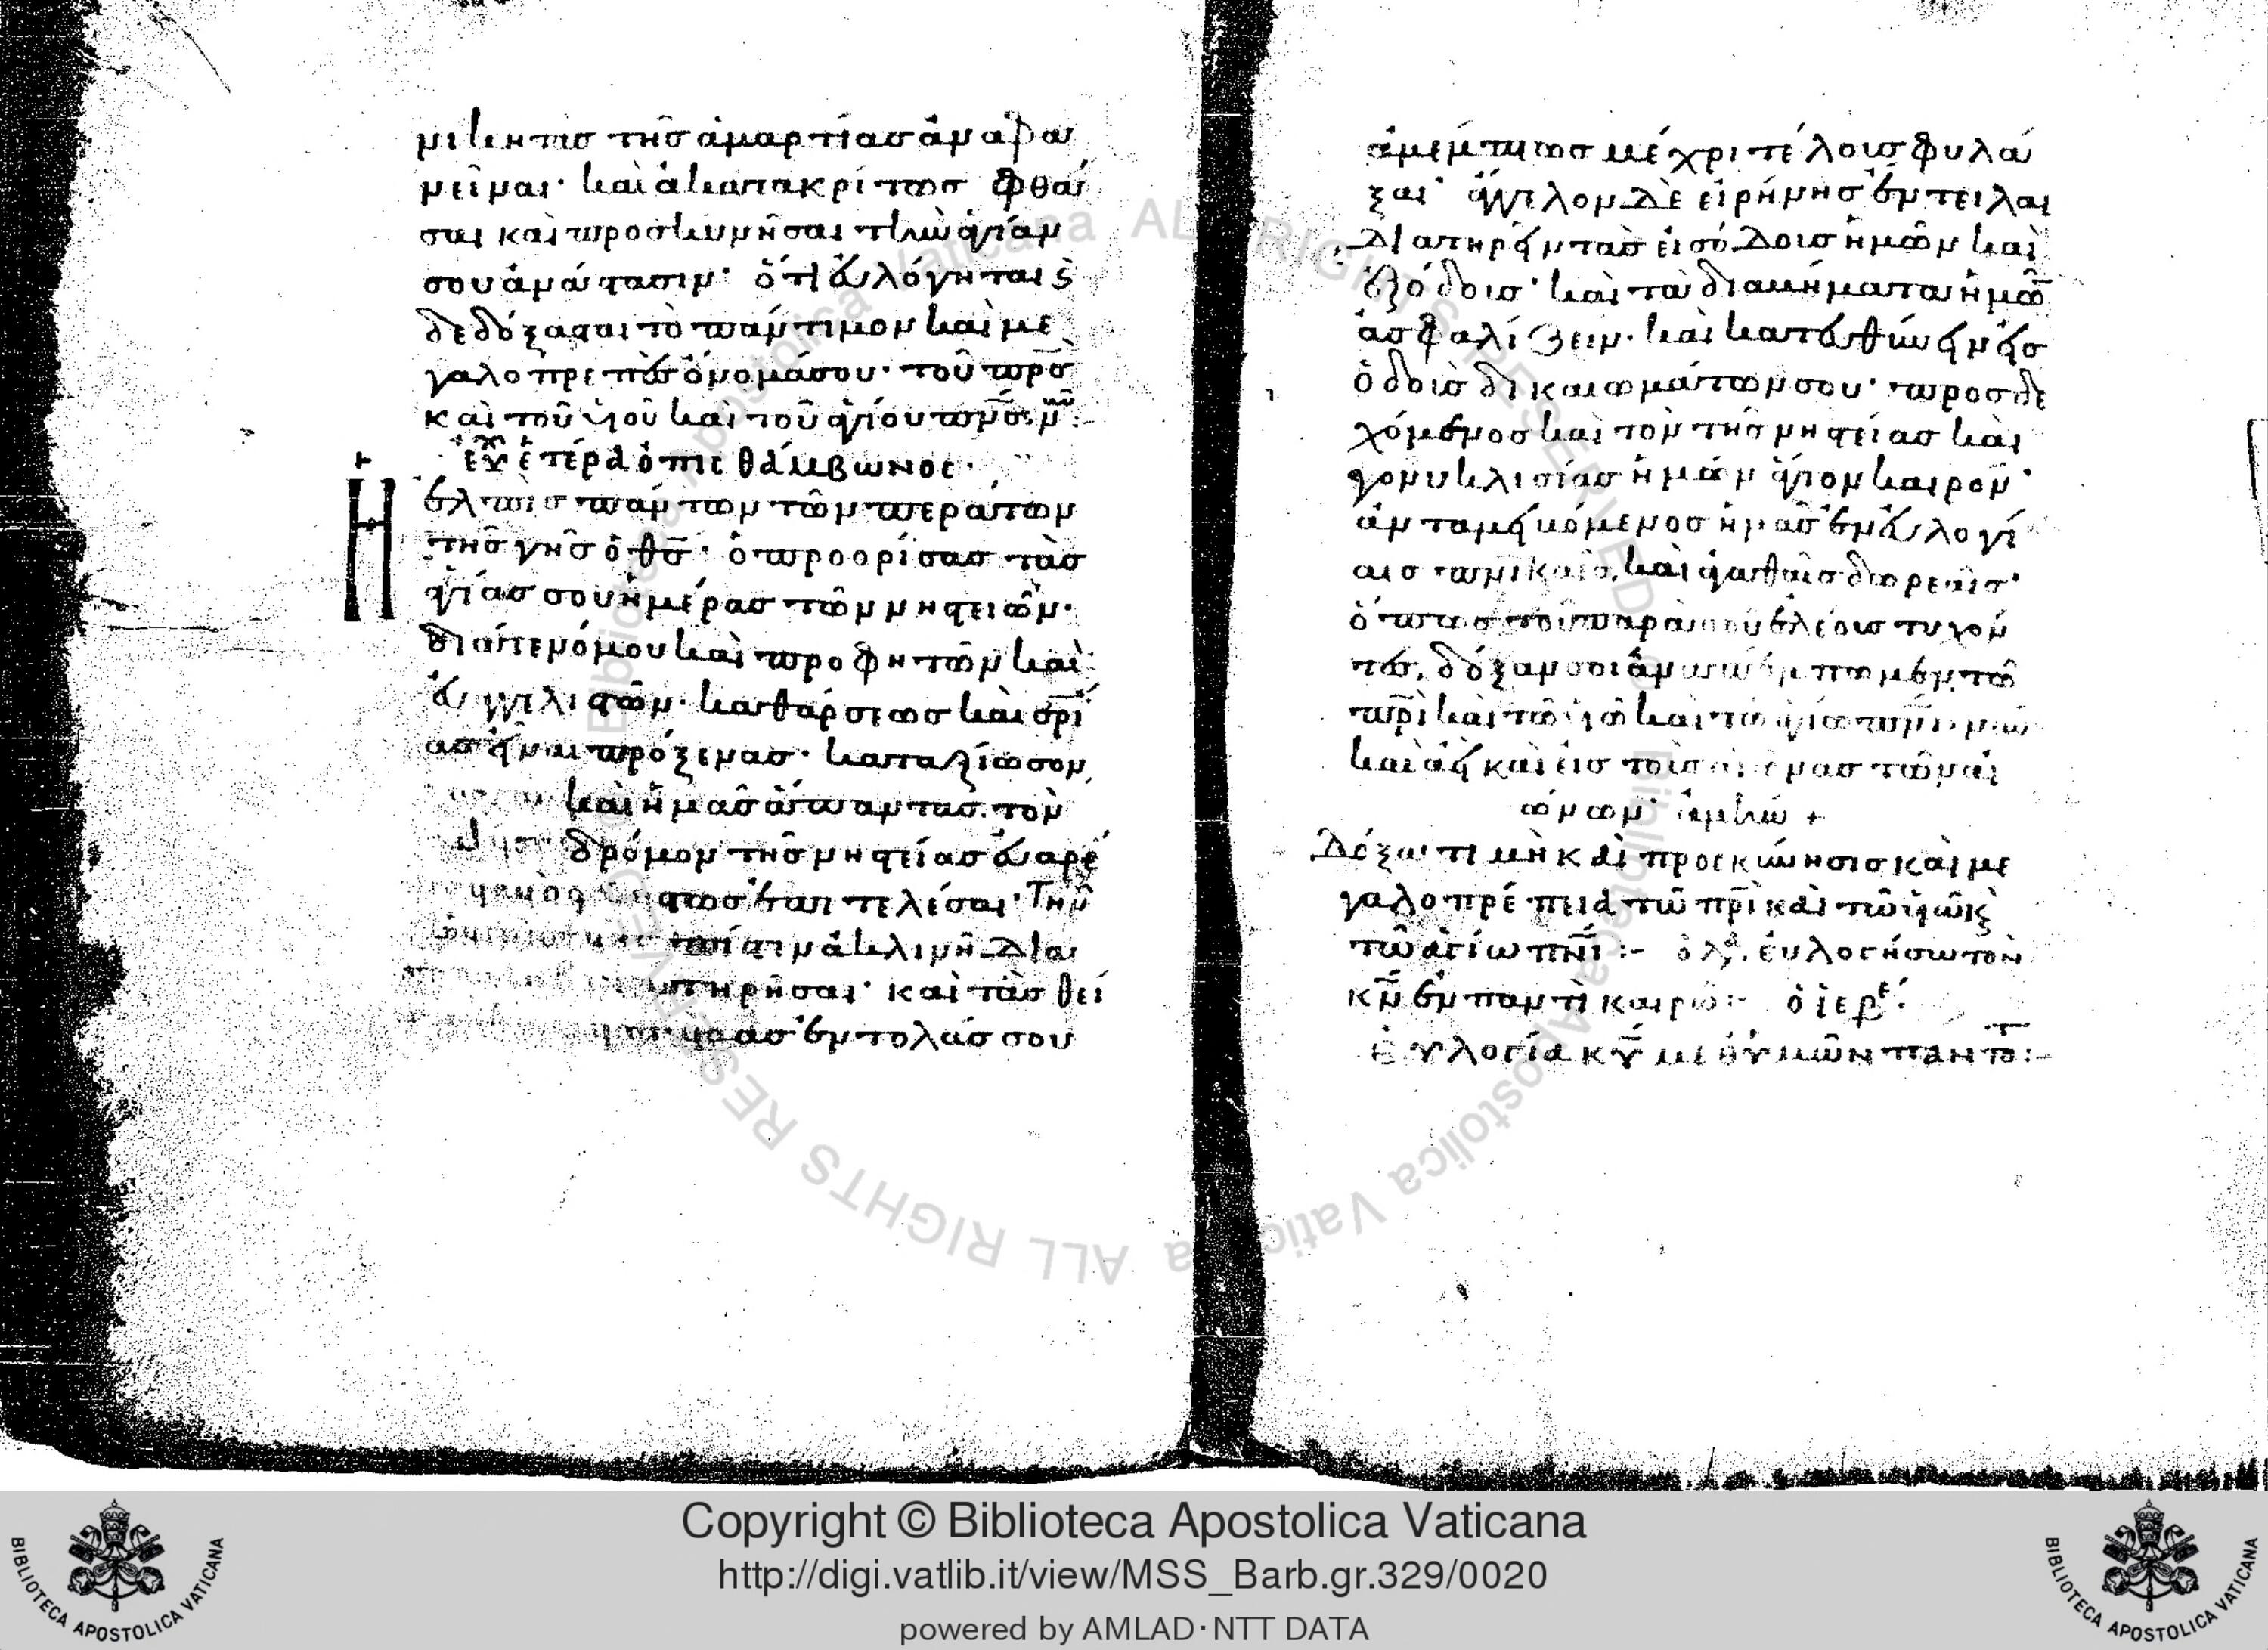 μικητὰς τῆς ἁμαρτίας ἀναφα
νεῖναι· καὶ ἀκατακρίτως φθά
σαι καὶ προσκυνῆσαι τὴν ἁγίαν
σου ἀνάστασιν· ὅτι εὐλόγηται ς̀
δεδόξασται τὸ πάντιμον καὶ με
γαλοπρεπὲς ὄνομά σου· τοῦ πρς̅
καὶ τοῦ υἱοῦ καὶ τοῦ ἁγίου πνς̅ ν̅:-
εὐχ ἑτέρα ὀπισθάμβωνος·
Ἡ ἐλπὶς πάντων τῶν περάτων
τῆς γῆς ὁ θς̅· ὁ προορίσας τὰς
ἁγίας σου ἡμέρας τῶν νηστειῶν·
διά τε νόμου καὶ προφητῶν καὶ
εὐαγγελιστῶν· καθάρσεως καὶ σρί
ας εἶναι πρόξενας· καταξίωσον
καὶ ἡμᾶς ἅπαντας. τὸν
δρόμον τῆς νηστείας εὐαρέ
στως ἐκτελέσαι· Τὴν
πίστιν ἀκλινῆ δια
τηρῆσαι· καὶ τὰς θεί
ας ἐντολάς σου
ἀμέμπτως μέχρι τέλους φυλά
ξαι· ἄγγελον δὲ εἰρήνης ἔντειλαι
διατηρεῖν τὰς εἰσόδους ἡμῶν καὶ
ἐξόδους· καὶ τὰ διαβήματα ἡμῶ̅
ἀσφαλίζειν· καὶ κατευθύνειν εἰς
ὁδοὺς δικαιωμάτων σου· προσδε
χόμενος καὶ τὸν τῆς νηστείας καὶ
γονυκλισίας ἡμῶν ἅγιον καιρόν·
ἀνταμειβόμενος ἡμᾶς ἐν εὐλογί
αις πν̅ικαῖς, καὶ ἀγαθαῖς δωρεαῖς·
ὅπως τοῦ παρὰ σοῦ ἐλέους τυχόν
τες, δόξαν σοι ἀναπέμπωμεν, τῶ
πρὶ̅ καὶ τῶ υἱῶ καὶ τῶ ἁγίω πνι̅ νῦν
καὶ ἀεὶ καὶ εἰς τοὺς αἰῶνας τῶν αἰ
ώνων· ἀμήν +
Δόξα τιμὴ καὶ προσκύνησις καὶ με
γαλοπρέπεια τῶ πρὶ̅ καὶ τῶ υἱῶ κς̀
τῶ ἁγίω πνί̅:- ὁ λα. εὐλογήσω τὸν
κν̅ ἐν παντὶ καιρῶ:- ὁ ἱερε·
Εὐλογία κυ̅ με ὑμῶν παντο:-
Copyright © Biblioteca Apostolica Vaticana
http://digi.vatlib.it/view/MSS_Barb.gr.329/0020
powered by AMLAD·NTT DATA
BIBLIOTECA APOSTOLICA VATICANA
BIBLIOTECA APOSTOLICA VATICANA